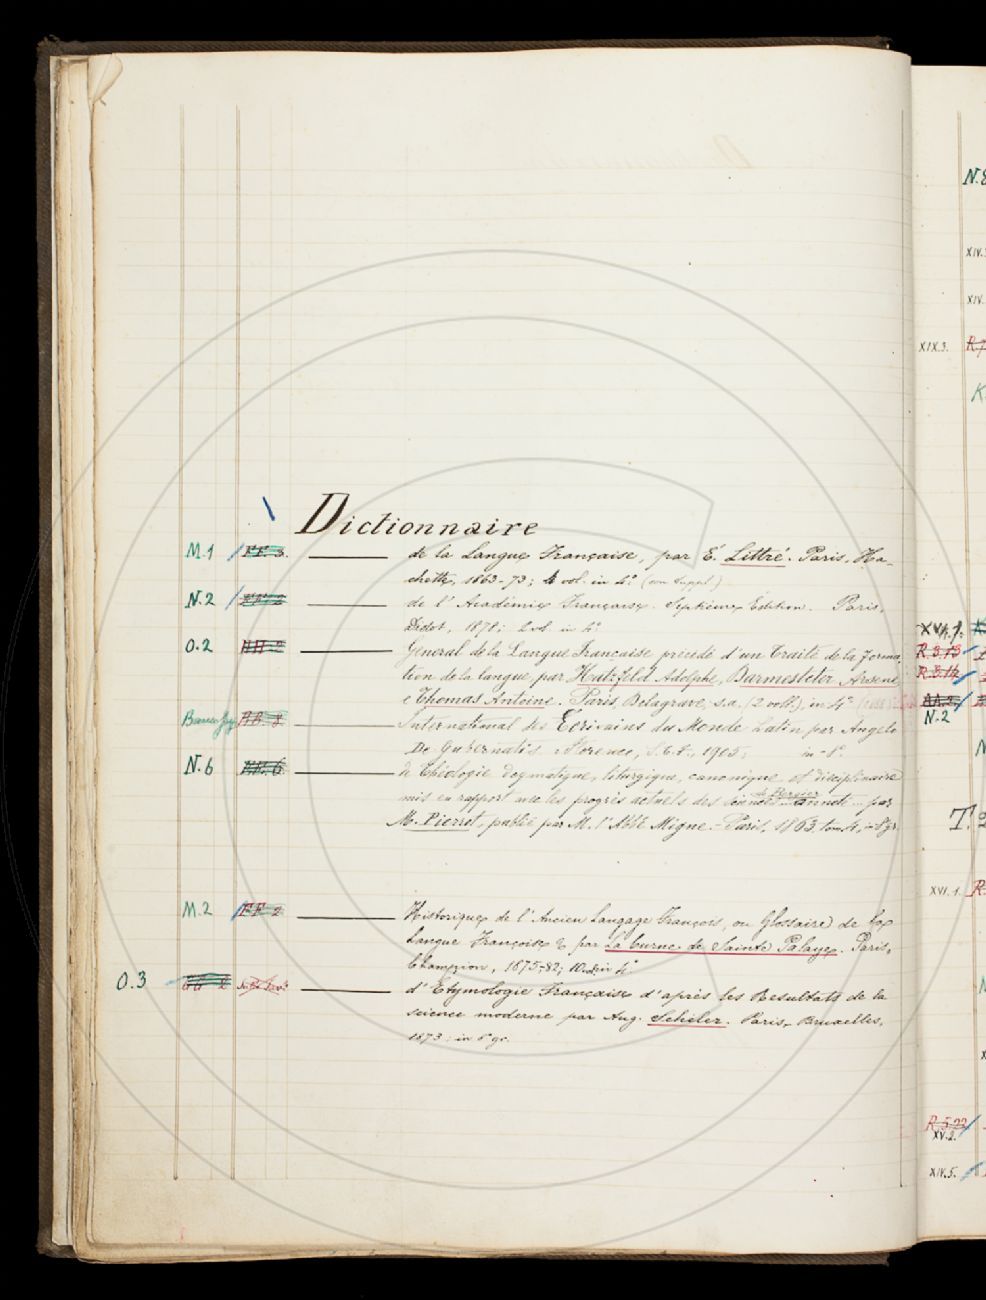 Dictionnaire
M.1 FF 3 de la Langue Française, par É. Littré. Paris, Ha-
chette, 1863-73; 4 vol. in 4.° (con Suppl.)
N.2 de l'Académie Française. Septième Édition. Paris,
Didot, 1878; 2 vol. in 4.°
O.2 HH 2 Général de la Langue Française précédé d'un Traité de la forma
tion de la langue, par Hatzfeld Adolphe, Darmesteter Arsène
e Thomas Antoine. Paris, Delagrave, s.a., (2 voll.), in 4.°
BB 8 International des Écrivains du Monde Latin par Angelo
De Gubernatis. Florence, 1905, in-8°.
N.6 de Théologie dogmatique, liturgique, canonique et disciplinaire
de Bergier
mis en rapport avec les progrès actuels des sciences ... annoté ... par
M. Pierrot, publié par M. l'Abbé Migne. - Paris, 1863, tom. 4, in 8° gr.
M.2 FF 2 Historique de l'Ancien Langage François, ou Glossaire de la
Langue Françoise & par La Curne de Sainte Palaye. Paris,
Champion, 1875-82; 10 vol. in 4.°
O.3 d'Etymologie Française d'après les Résultats de la
science moderne par Aug. Scheler. Paris, Bruxelles,
1873; in 8° gr.
XIV.
XIV.
XIX.3.
K
XVI.1.
R.5.13
R.5.14
AA.2
N.2
T.
XVI.1. R.
R.5.22
XV.2.
XIV.5.